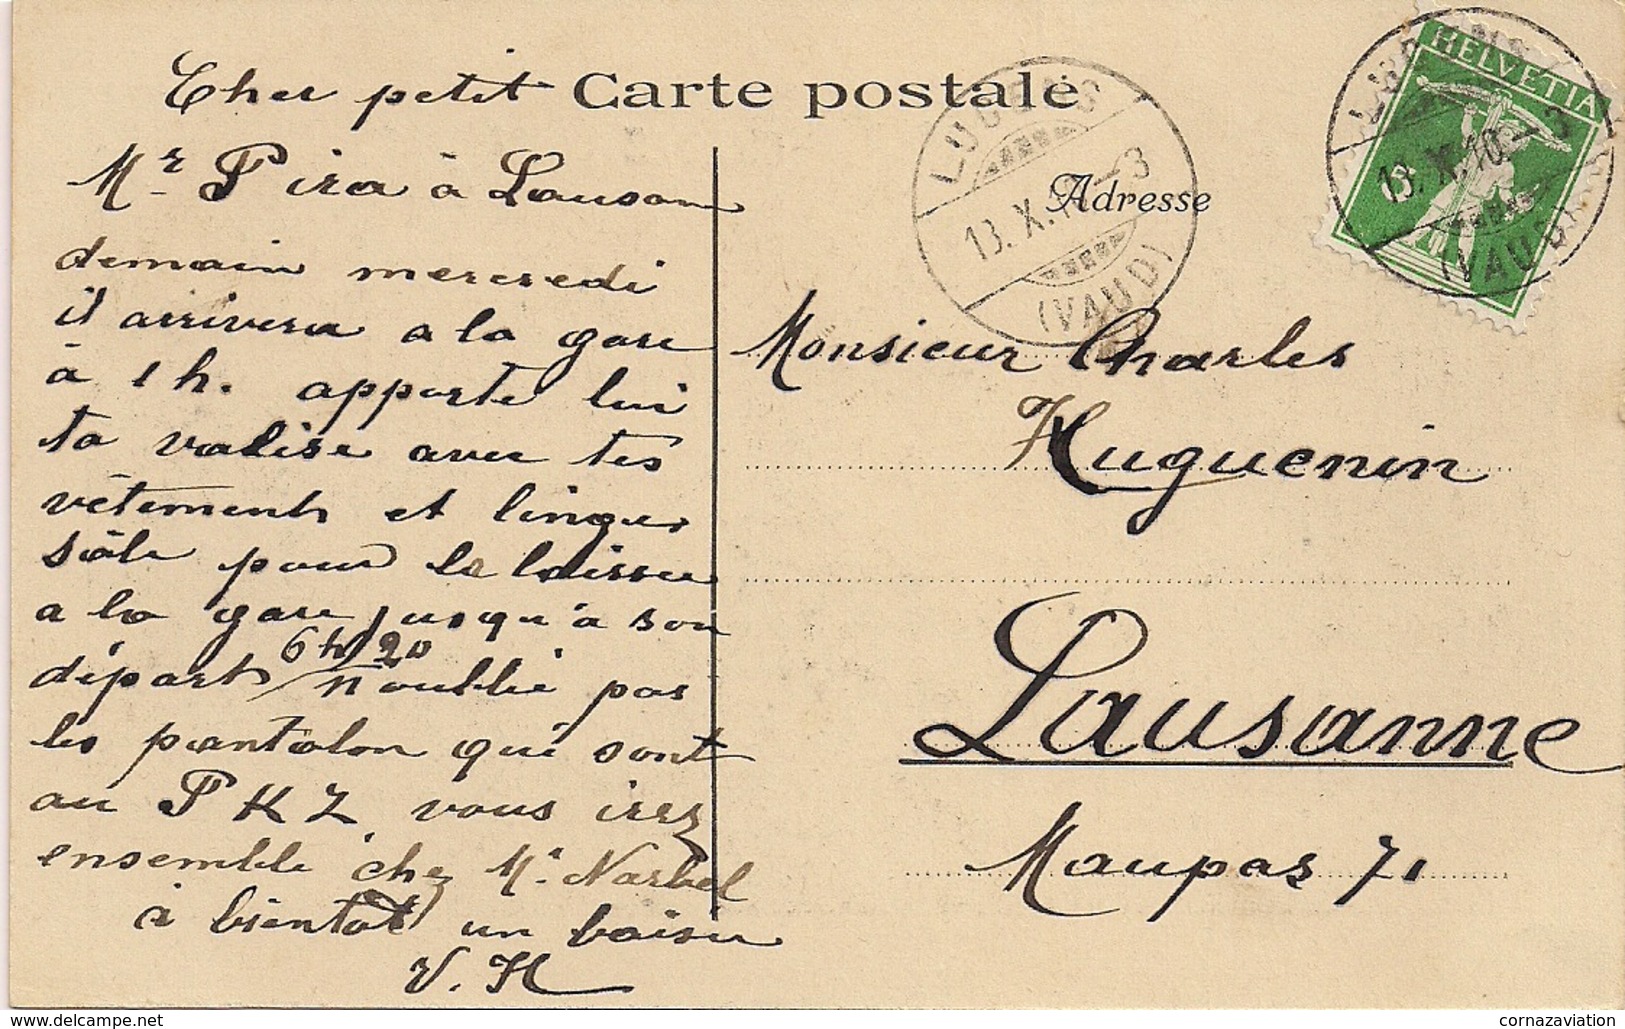 Carte postale
Cher petit
Mr Pira à Lausan
demain mercredi
il arrivera a la gare
à 1 h. apporte lui
ta valise avec tes
vêtements et linges
sâle pour le laisser
a la gare jusqu'à son
6h/20
départ n'oublie pas
les pantalon qui sont
au PKZ vous irez
ensemble chez Mr. Narbel
à bientôt un baiser
V. H
Adresse
Monsieur Charles
Huguenin
Lausanne
Maupas 71
HELVETIA
LUCENS
13. X. 10 - 3
(VAUD)
13. X. - 3
(VAUD)
www.delcampe.net
cornazaviation